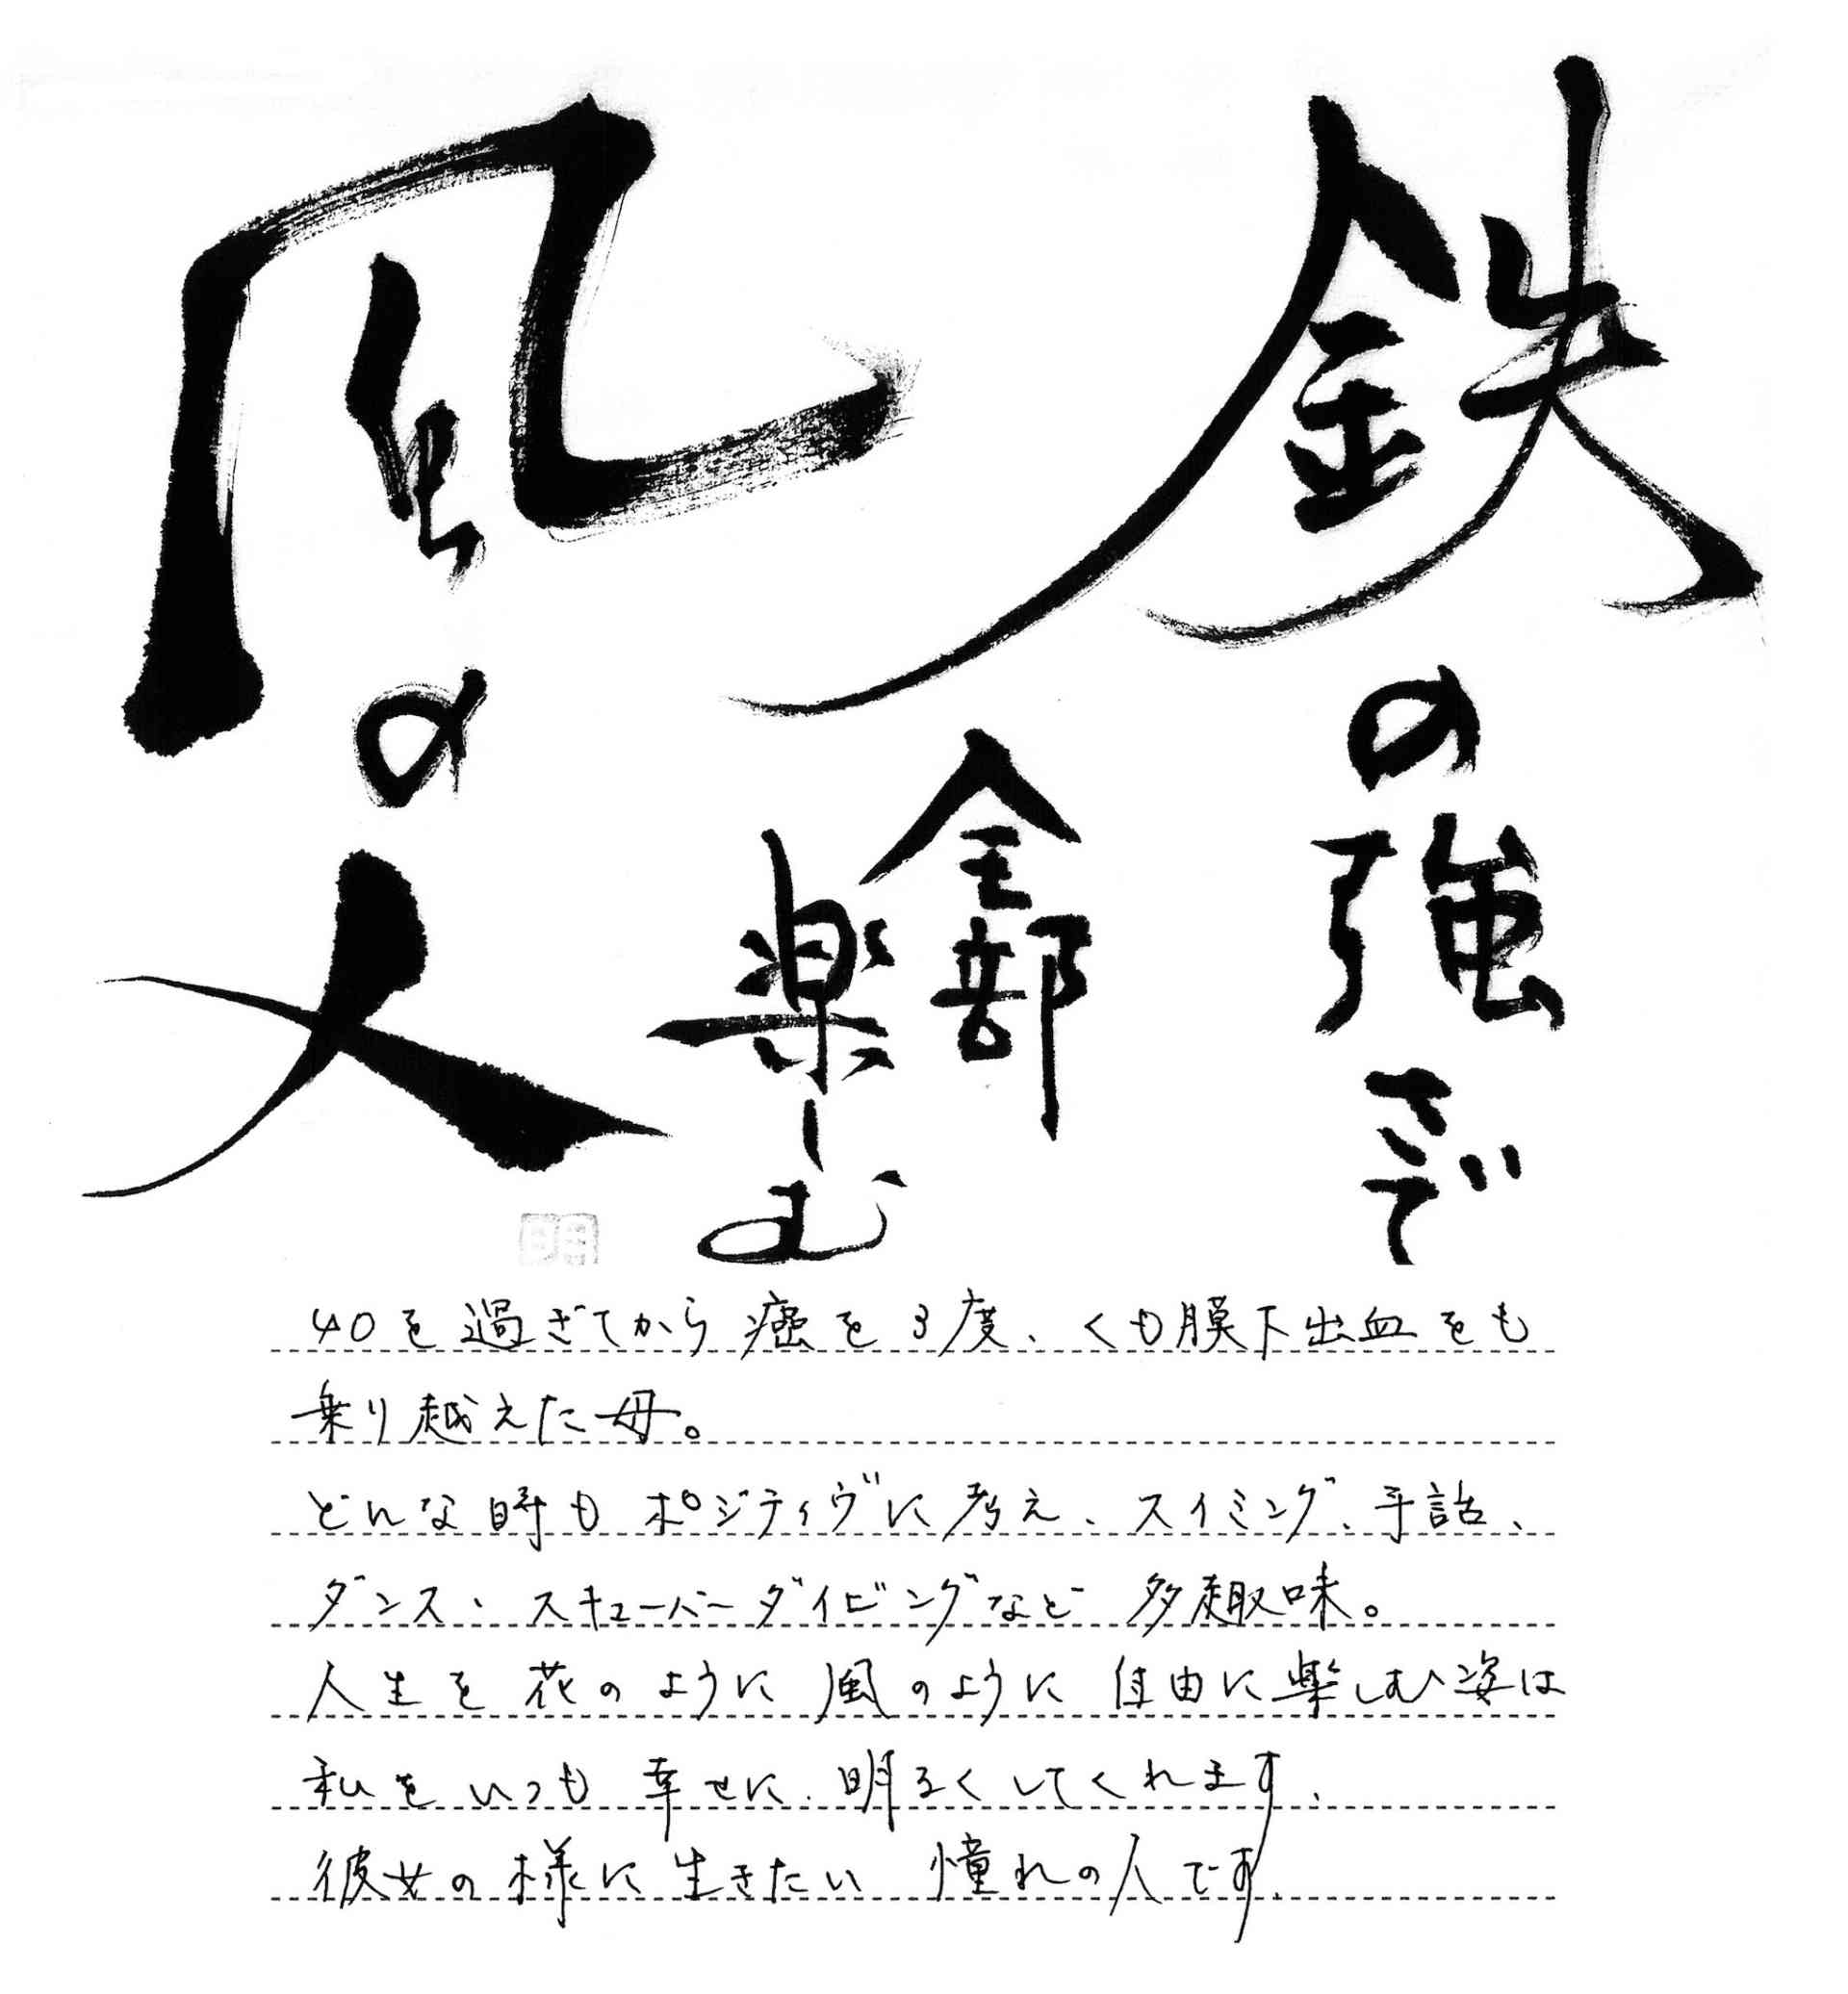 鉄の強さで
全部
楽しむ
風の人
明
40を過ぎてから癌を3度、くも膜下出血をも
乗り越えた母。
どんな時もポジティヴに考え、スイミング、手話、
ダンス、スキューバーダイビングなど多趣味。
人生を花のように風のように自由に楽しむ姿は
私をいつも幸せに、明るくしてくれます。
彼女の様に生きたい憧れの人です。